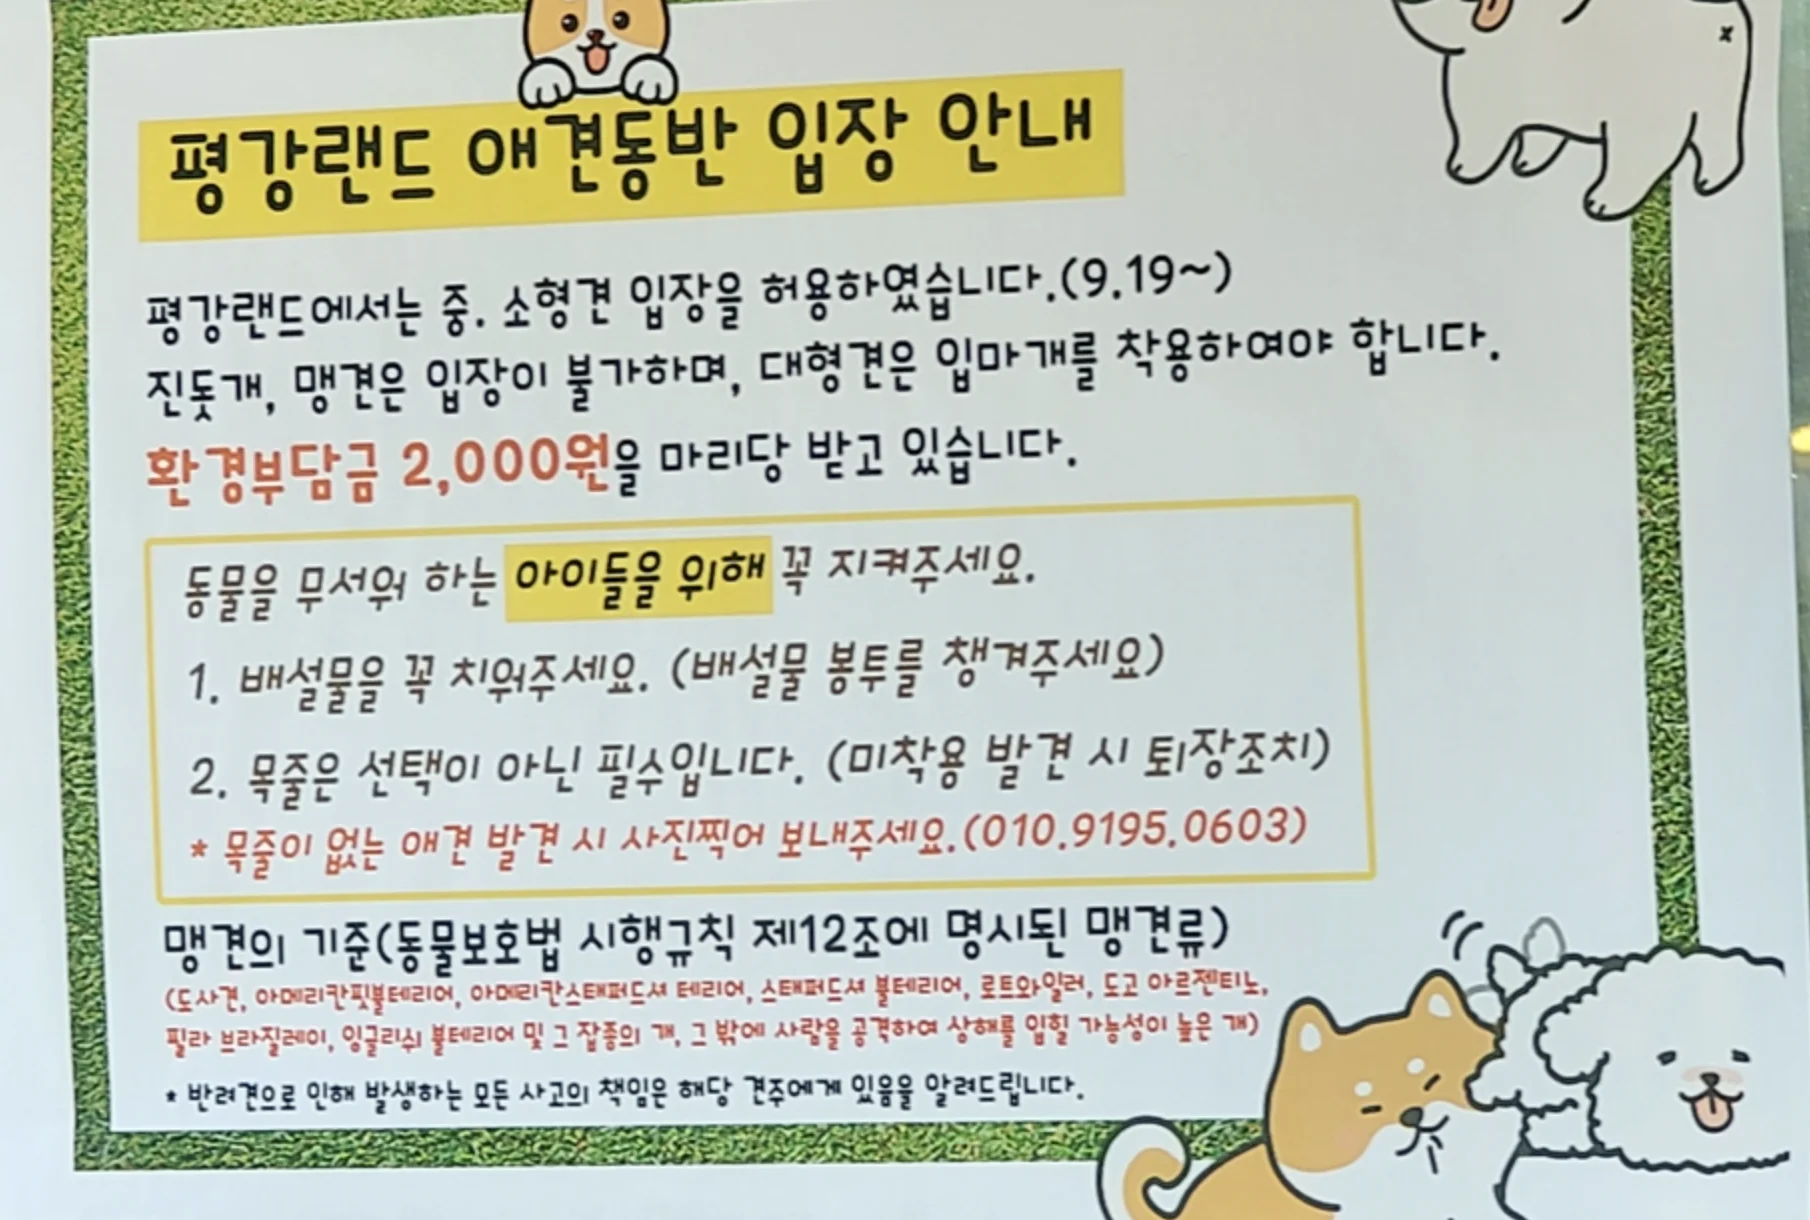 평강랜드 애견동반 입장 안내
평강랜드에서는 중. 소형견 입장을 허용하였습니다.(9.19~)
진돗개, 맹견은 입장이 불가하며, 대형견은 입마개를 착용하여야 합니다.
환경부담금 2,000원을 마리당 받고 있습니다.
동물을 무서워 하는 아이들을 위해 꼭 지켜주세요.
1. 배설물을 꼭 치워주세요. (배설물 봉투를 챙겨주세요)
2. 목줄은 선택이 아닌 필수입니다. (미착용 발견 시 퇴장조치)
* 목줄이 없는 애견 발견 시 사진찍어 보내주세요.(010.9195.0603)
맹견의 기준(동물보호법 시행규칙 제12조에 명시된 맹견류)
(도사견, 아메리칸핏불테리어, 아메리칸스태퍼드셔 테리어, 스태퍼드셔 불테리어, 로트와일러, 도고 아르젠티노,
필라 브라질레이, 잉글리쉬 불테리어 및 그 잡종의 개, 그 밖에 사람을 공격하여 상해를 입힐 가능성이 높은 개)
* 반려견으로 인해 발생하는 모든 사고의 책임은 해당 견주에게 있음을 알려드립니다.